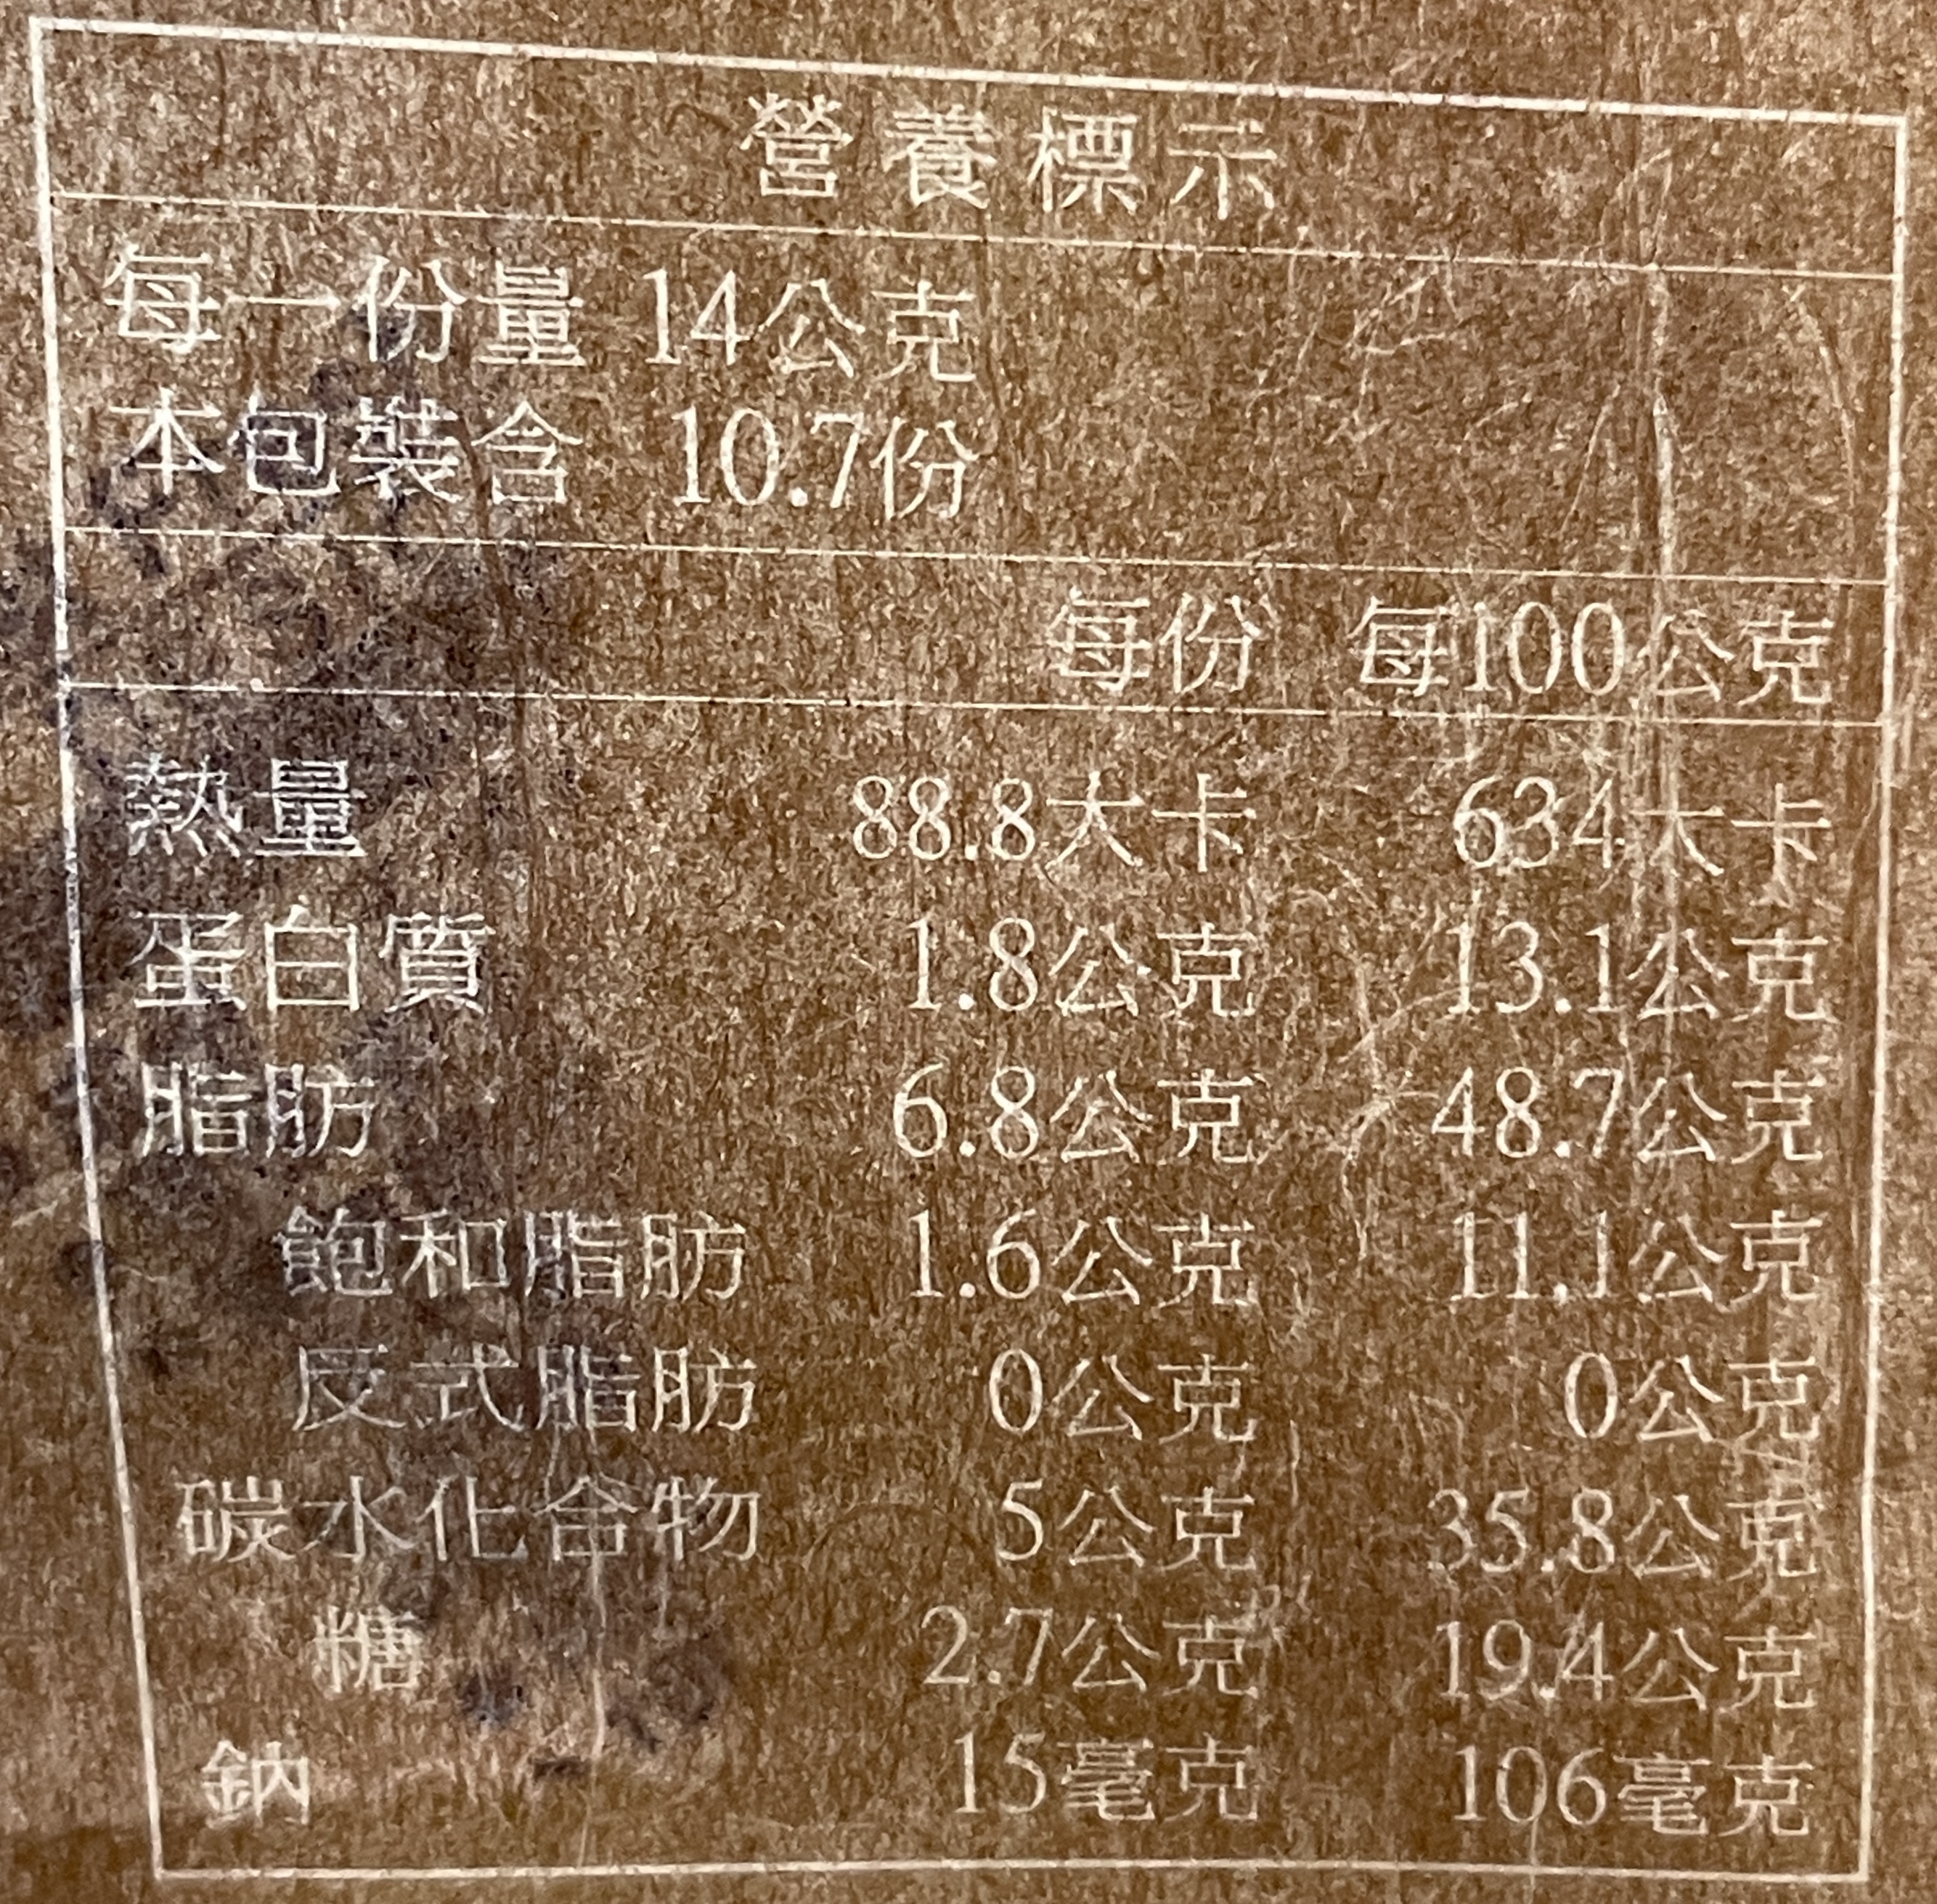 營養標示
每一份量 14公克
本包裝含 10.7份
每份 每100公克
熱量 88.8大卡 634大卡
蛋白質 1.8公克 13.1公克
脂肪 6.8公克 48.7公克
飽和脂肪 1.6公克 11.1公克
反式脂肪 0公克 0公克
碳水化合物 5公克 35.8公克
糖 2.7公克 19.4公克
鈉 15毫克 106毫克